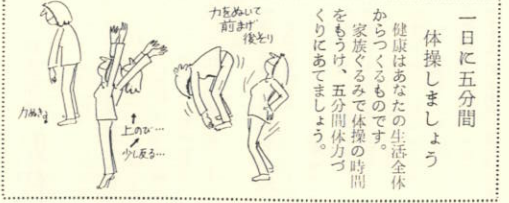 一日に五分間
体操しましょう
健康はあなたの生活全体
からつくるものです。
家族ぐるみで体操の時間
をもうけ、五分間体力づ
くりにあてましょう。
力をぬいて
前まげ
後そり
上のび…
少し反る…
力ぬき